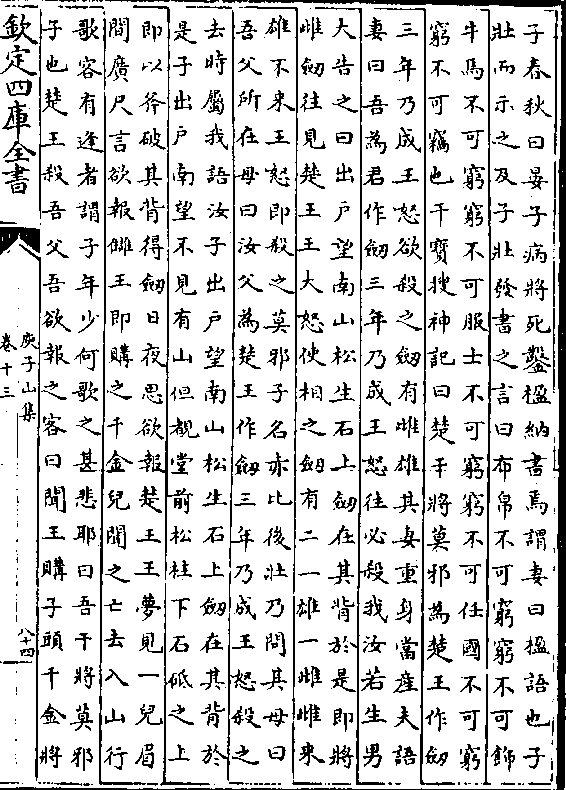 子春秋曰晏子病將死鑿楹納書焉謂妻曰楹語也子
壯而示之及子壯發書之言曰布帛不可窮窮不可飾
牛馬不可窮窮不可服士不可窮窮不可任國不可窮
窮不可竊也干寶搜神記曰楚干將莫邪為楚王作劔
三年乃成王怒欲殺之劔有雌雄其妻重身當産夫語
妻曰吾為君作劔三年乃成王怒往必殺我汝若生男
大告之曰出户望南山松生石上劔在其背於是即將
雌劔往見楚王王大怒使相之劔有二一雄一雌雌來
雄不來王怒即殺之莫邪子名赤比後壯乃問其母曰
吾父所在母曰汝父為楚王作劔三年乃成王怒殺之
去時屬我語汝子出户望南山松生石上劔在其背於
是子出户南望不見有山但覩堂前松柱下石砥之上
即以斧破其背得劔日夜思欲報楚王王夢見一兒眉
間廣尺言欲報讎王即購之千金兒聞之亡去入山行
歌客有逢者謂子年少何歌之甚悲耶曰吾干將莫邪
子也楚王殺吾父吾欲報之客曰聞王購子頭千金將
欽定四庫全書
庾子山集
卷十三
八十四